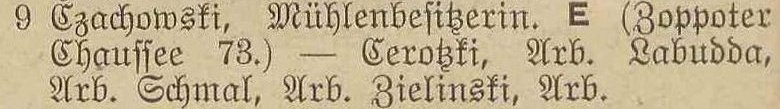 9 Czachowski, Mühlenbesitzerin. E (Zoppoter
Chaussee 73.) — Cerotzki, Arb. Labudda,
Arb. Schmal, Arb. Zielinski, Arb.